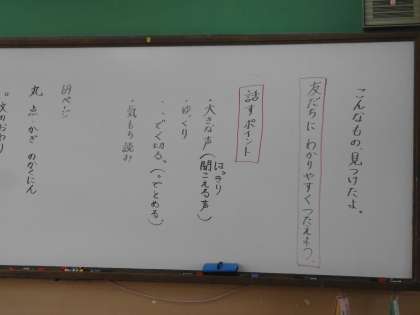 こんなもの、見つけたよ。
友だちに わかりやすくつたえよう。
話すポイント
・大きな声(聞こえる声)
はっきり
・ゆっくり
・、。で区切る。(。でとめる。)
・気もち読み
丸 点 かぎ のかくにん